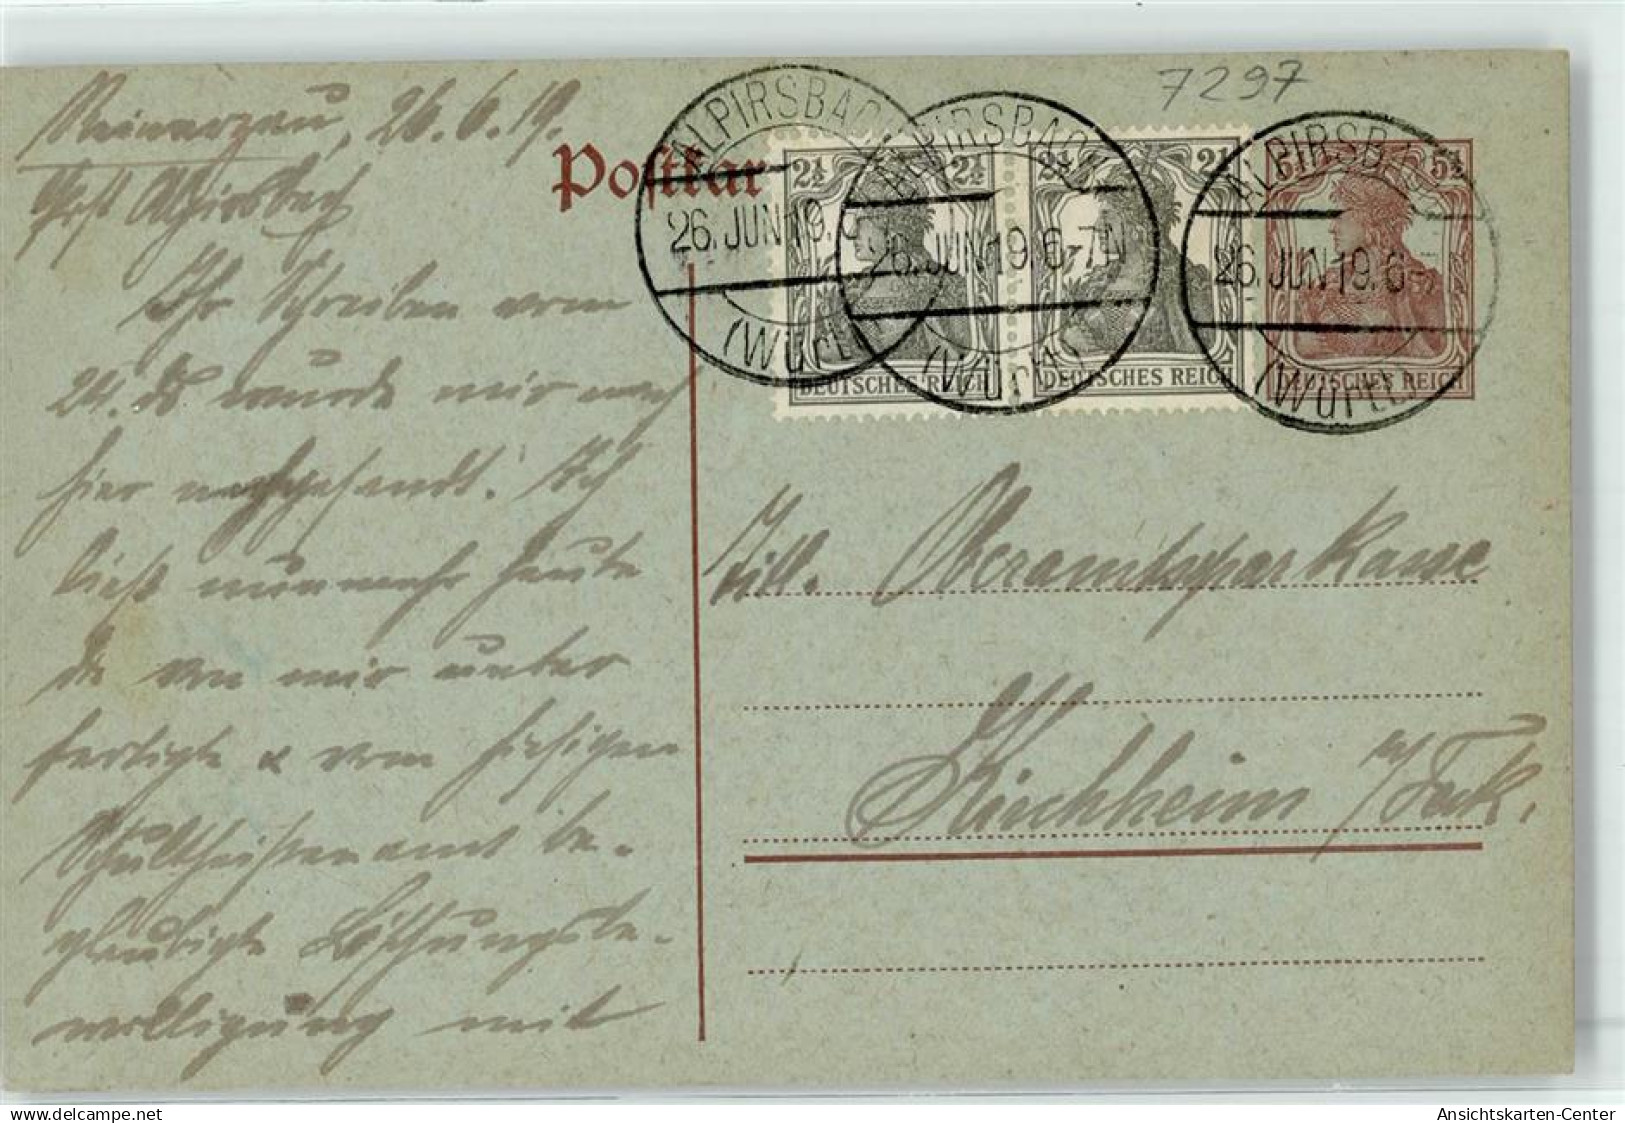 Reinerzau, 26.6.19.
Post Alpirsbach
Ihr Schreiben vom
24. ds wurde mir nach
hier nachgesandt. Ich
ließ nunmehr heute
die von mir unter
fertigte & vom hiesigen
Schultheißenamt be-
glaubigte Löschungsbe-
willigung mit
7297
Postkar
ALPIRSBACH
26.JUN 19.6
(Württ.)
ALPIRSBACH
26.JUN 19.6-7N
(Württ.)
ALPIRSBACH
26.JUN 19.6-7
(Württ.)
2½ 2½
DEUTSCHES REICH
2½ 2½
DEUTSCHES REICH
5½
DEUTSCHES REICH
Titl. Oberamtssparkasse
Kirchheim a/Teck.
Ansichtskarten-Center